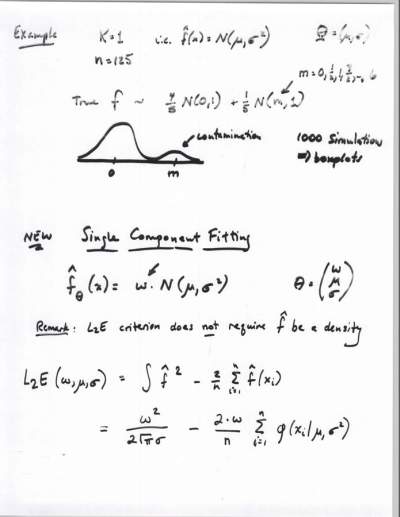 Example K=1 i.e. f̂(x) = N(μ, σ²) Θ = (μ, σ)
n=125
m = 0, 1/2, 1, 3/2, ..., 6
True f ~ 4/5 N(0,1) + 1/5 N(m,1)
contamination
1000 Simulation
⇒ boxplots
0 m
NEW Single Component Fitting
f̂_θ(x) = w · N(μ, σ²) θ = (w μ σ)
Remark: L₂E criterion does not require f̂ be a density
L₂E(w, μ, σ) = ∫ f̂² − 2/n Σ_{i=1}^{n} f̂(xᵢ)
= w²/(2√π σ) − (2·w)/n Σ_{i=1}^{n} φ(xᵢ | μ, σ²)